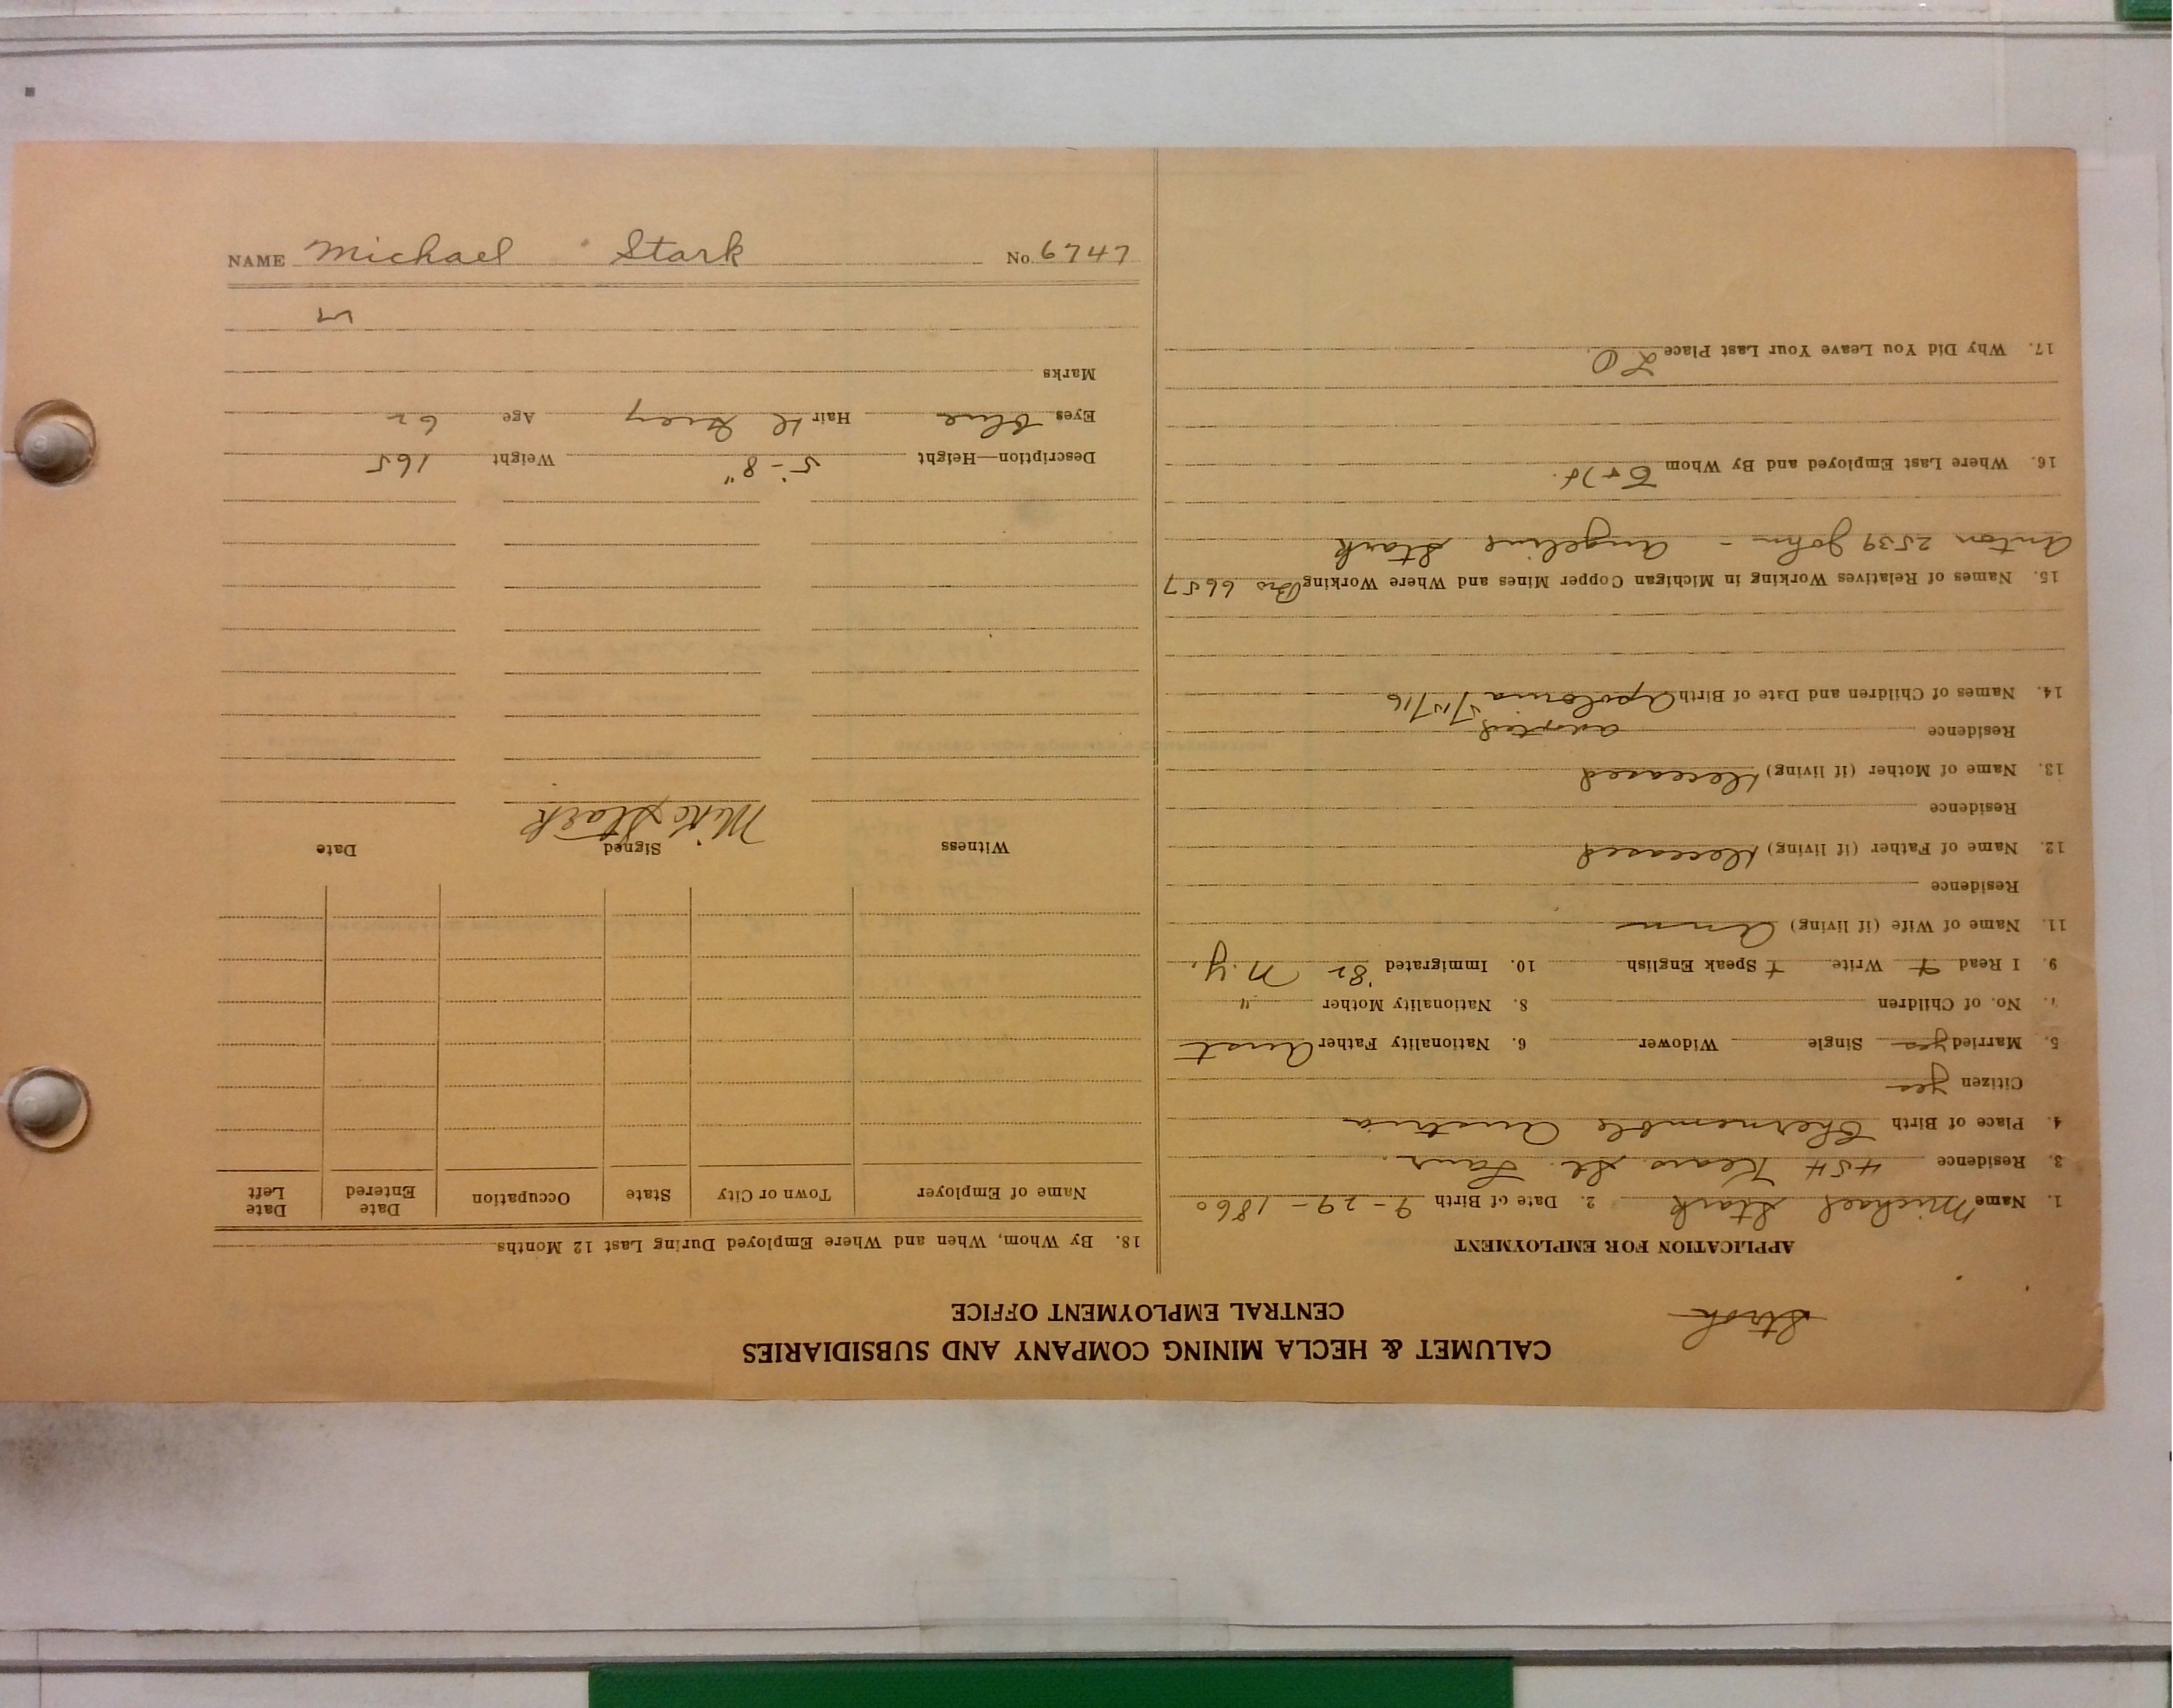 CALUMET & HECLA MINING COMPANY AND SUBSIDIARIES
CENTRAL EMPLOYMENT OFFICE
APPLICATION FOR EMPLOYMENT
1. Name Michael Stark 2. Date of Birth 9-29-1860
3. Residence 454 Kears. St. Laur.
4. Place of Birth Chernemble Austria
Citizen yes
5. Married yes Single Widower 6. Nationality Father Aust
7. No. of Children 8. Nationality Mother "
9. I Read + Write + Speak English 10. Immigrated '82 N.Y.
11. Name of Wife (if living) Ann
Residence
12. Name of Father (if living) Deceased
Residence
13. Name of Mother (if living) Deceased
Residence
adopted
14. Names of Children and Date of Birth Apolonia
15. Names of Relatives Working in Michigan Copper Mines and Where Working Bro 6657
Anton 2539 John - Angeline Stark
16. Where Last Employed and By Whom
17. Why Did You Leave Your Last Place LO
18. By Whom, When and Where Employed During Last 12 Months
Name of Employer Town or City State Occupation Date Entered Date Left
Witness Signed Date
Mike Stark
Description—Height 5'-8" Weight 165
Eyes blue Hair Grey Age 62
Marks
NAME Michael Stark No. 6747